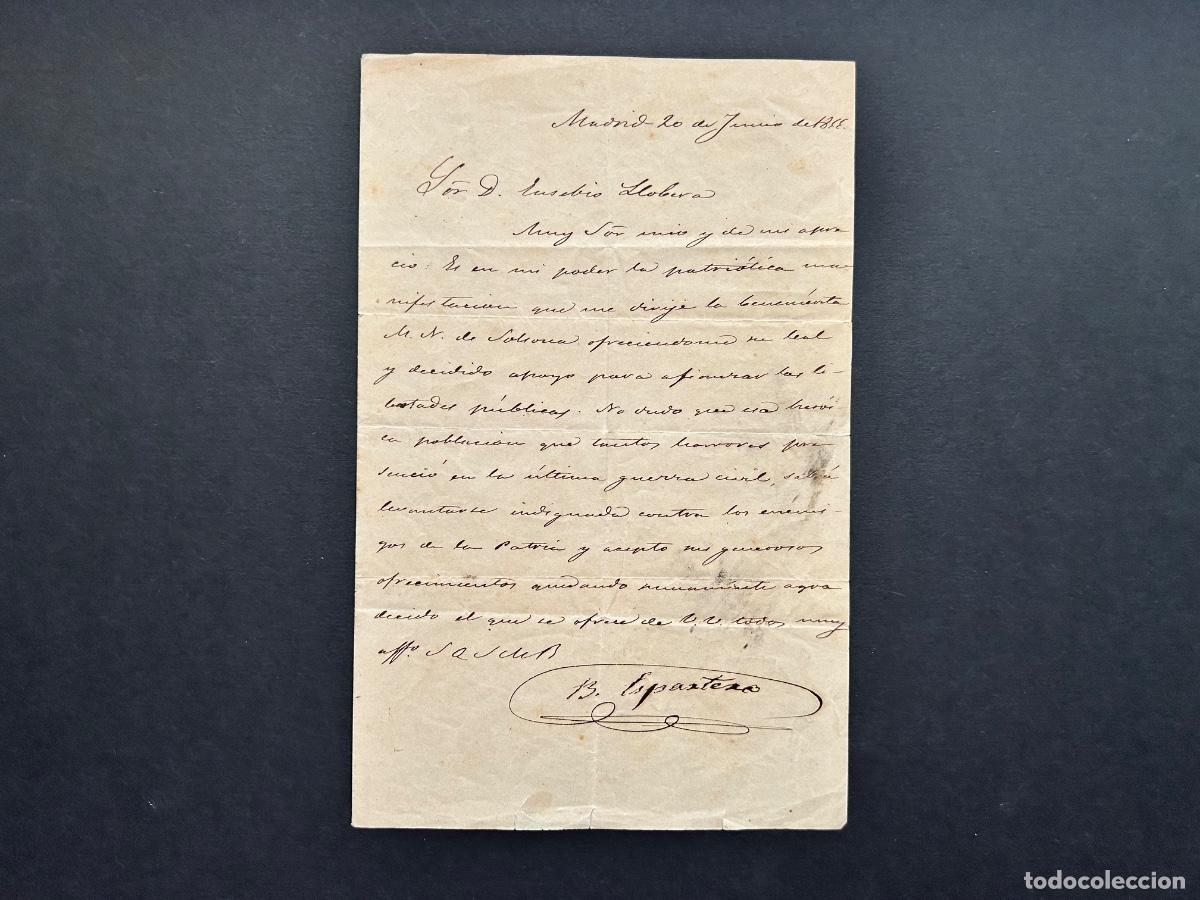 Madrid 20 de Junio de 185
Sor D. Eusebio Llobera
Muy Sor mio y de mi apre
cio: Es en mi poder la patriótica ma-
nifestacion que me dirije la benemérita
M. N. de Solsona ofreciendome su leal
y decidido apoyo para afianzar las li-
bertades públicas. No dudo que esa herói
ca poblacion que tantos horrores pre
senció en la última guerra civil, sabrá
levantarse indignada contra los enemi-
gos de la Patria y acepto sus generosos
ofrecimientos quedando sumamente agra
decido el que se ofrece de V. V. todos muy
affo. S Q S M B
B. Espartero
todocoleccion